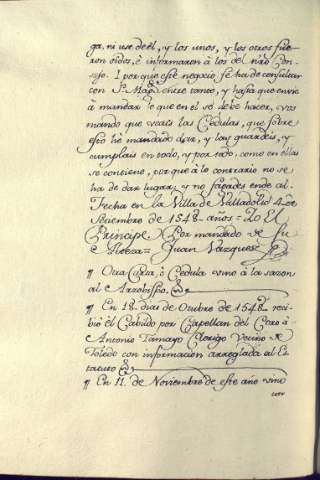 ga, ni use de él, y los unos, y los otros fue-
ron oidos, è informaron à los del nr̃o Con-
sejo. I porque este negocio se ha de consultar
con S. Magd. entre tanto, y hasta que envie
à mandar lo que en el se debe hacer, vos
mando que veais las Cedulas, que sobre
esto hè mandado dar, y las guardeis, y
cumplais en todo, y por todo, como en ellas
se contiene, porque à lo contrario no se
ha de dar lugar, y no fagades ende al.
Fecha en la Villa de Valladolid 4 de
Setiembre de 1548 años = Io El
Principe = Por mandado de Su
Alteza = Juan Vazquez
¶ Otra Carta, è Cedula vino à la sazon
al Arzobispo.
¶ En 18 dias de Otubre de 1548 reci-
biò el Cabildo por Capellan del Coro à
Antonio Tamayo Clerigo Vecino de
Toledo con informacion arreglada al Es-
tatuto
¶ En 11 de Noviembre de este año vino